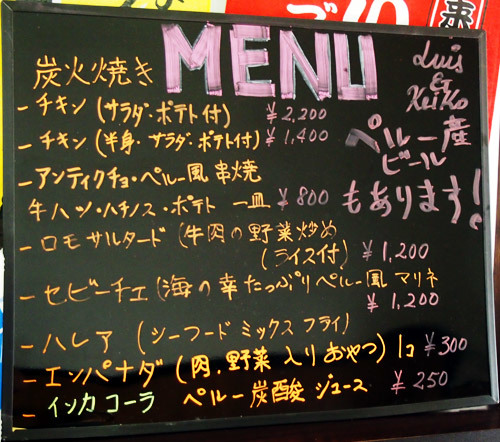 MENU
Luis
&
KeiKo
炭火焼き
- チキン (サラダ・ポテト付) ¥2,200
- チキン (半身・サラダ・ポテト付) ¥1,400
- アンティクチョ・ペルー風 串焼
牛ハツ・ハチノス・ポテト 一皿 ¥800
- ロモサルタード (牛肉の野菜炒め
(ライス付) ¥1,200
- セビーチェ (海の幸たっぷりペルー風 マリネ
¥1,200
- ハレア (シーフードミックスフライ)
- エンパナダ (肉、野菜入りおやつ) 1コ ¥300
- インカコーラ ペルー炭酸ジュース ¥250
ペルー産
ビール
もあります!